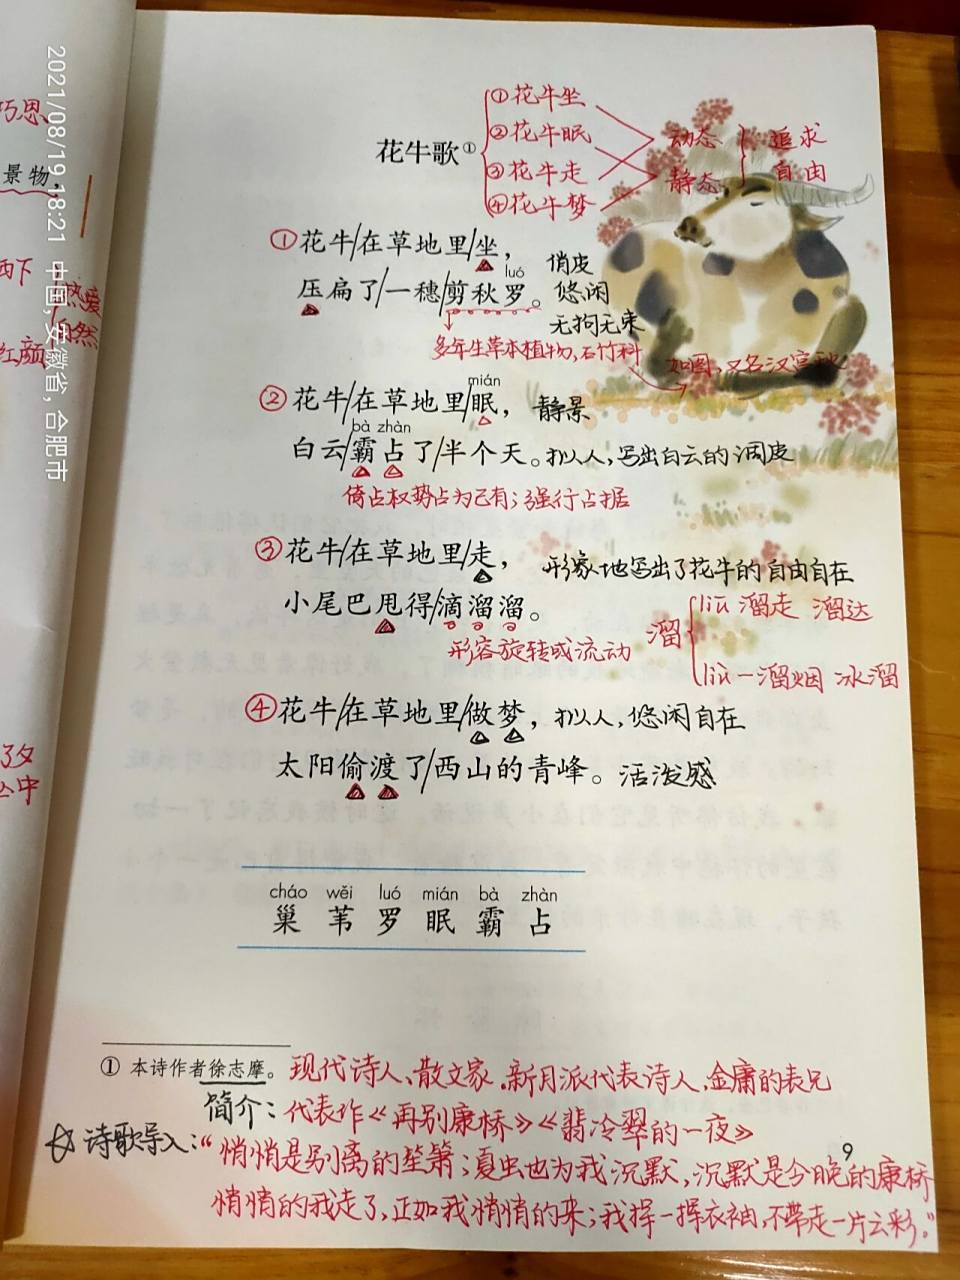 2021/08/19 18:21 中国,安徽省,合肥市
巧思
景物,
热爱
自然
红颜
花牛歌①
①花牛坐
②花牛眠
③花牛走
④花牛梦
动态
静态
追求
自由
①花牛/在草地里/坐,
俏皮
luó
压扁了/一穗/剪秋罗。
悠闲
无拘无束
多年生草本植物,石竹科
如图,又名汉宫秋
mián
②花牛/在草地里/眠,静景
bà zhàn
白云/霸占了/半个天。拟人,写出白云的调皮
倚占权势占为己有;强行占据
③花牛/在草地里/走,形象地写出了花牛的自由自在
小尾巴甩得/滴溜溜。
形容旋转或流动
溜
liū 溜走 溜达
liù 一溜烟 冰溜
④花牛/在草地里/做梦,拟人,悠闲自在
太阳偷渡了/西山的青峰。活泼感
cháo wěi luó mián bà zhàn
巢 苇 罗 眠 霸 占
① 本诗作者徐志摩。现代诗人、散文家.新月派代表诗人,金庸的表兄
简介:代表作《再别康桥》《翡冷翠的一夜》
9
诗歌导入:“悄悄是别离的笙箫;夏虫也为我沉默,沉默是今晚的康桥
悄悄的我走了,正如我悄悄的来;我挥一挥衣袖,不带走一片云彩。”